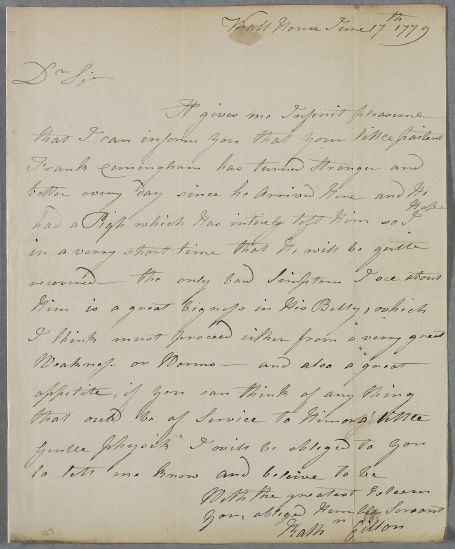 Wall House June 17th 1779
Dr Sir
It gives me Infinit pleasure
that I can inform you that your little patient
Frank Cuningham has turned stronger and
better every day since he arrived Here and He
has a Pigh which Has intirely left Him so I Hope
in a verry short time that He will be quite
recovered - the only bad Simptom I see about
Him is a great bigness in His Belly, which
I think must proceed either from a verry great
Weakness or Worms - and also a great
appetite, if you can think of any thing
that could be of Service to Him or a little
Gentle physick I will be obliged to you
to let me know and beleive to be
With the greatest Esteem
your obliged Humble Servant
Kathn